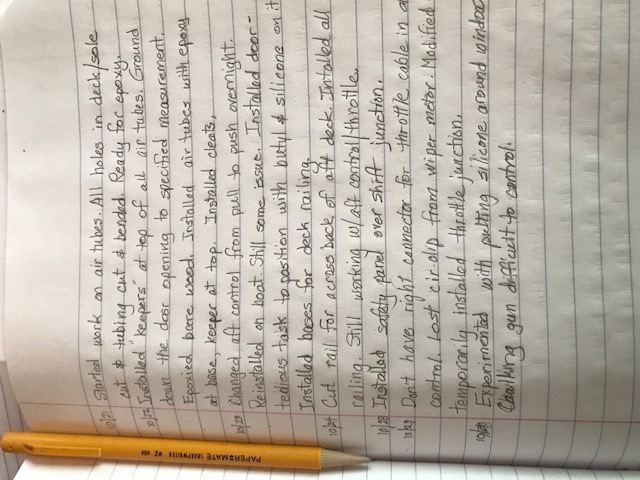 10/21 Started work on air tubes. All holes in deck/sole
cut & tubing cut & bended. Ready for epoxy.
10/22 Installed "keepers" at top of all air tubes. Ground
down the door opening to specified measurement.
Epoxied bare wood. Installed air tubes with epoxy
at base, keeper at top. Installed cleats.
10/23 Changed aft control from pull to push overnight.
Reinstalled on boat. Still some issue. Installed door -
tedious task to position with butyl & silicone on it
Installed bases for deck railing.
10/24 Cut rail for across back of aft deck. Intalled all
railing. Still working w/aft control/throttle.
10/28 Installed safety panel over shift junction.
10/29 Don't have right connector for throttle cable in a
control. Lost circlip from wiper motor. Modified
temporarily installed throttle junction.
10/30 Experimented with putting silicone around window
Caulking gun difficult to control.
PAPERMATE #2 USA